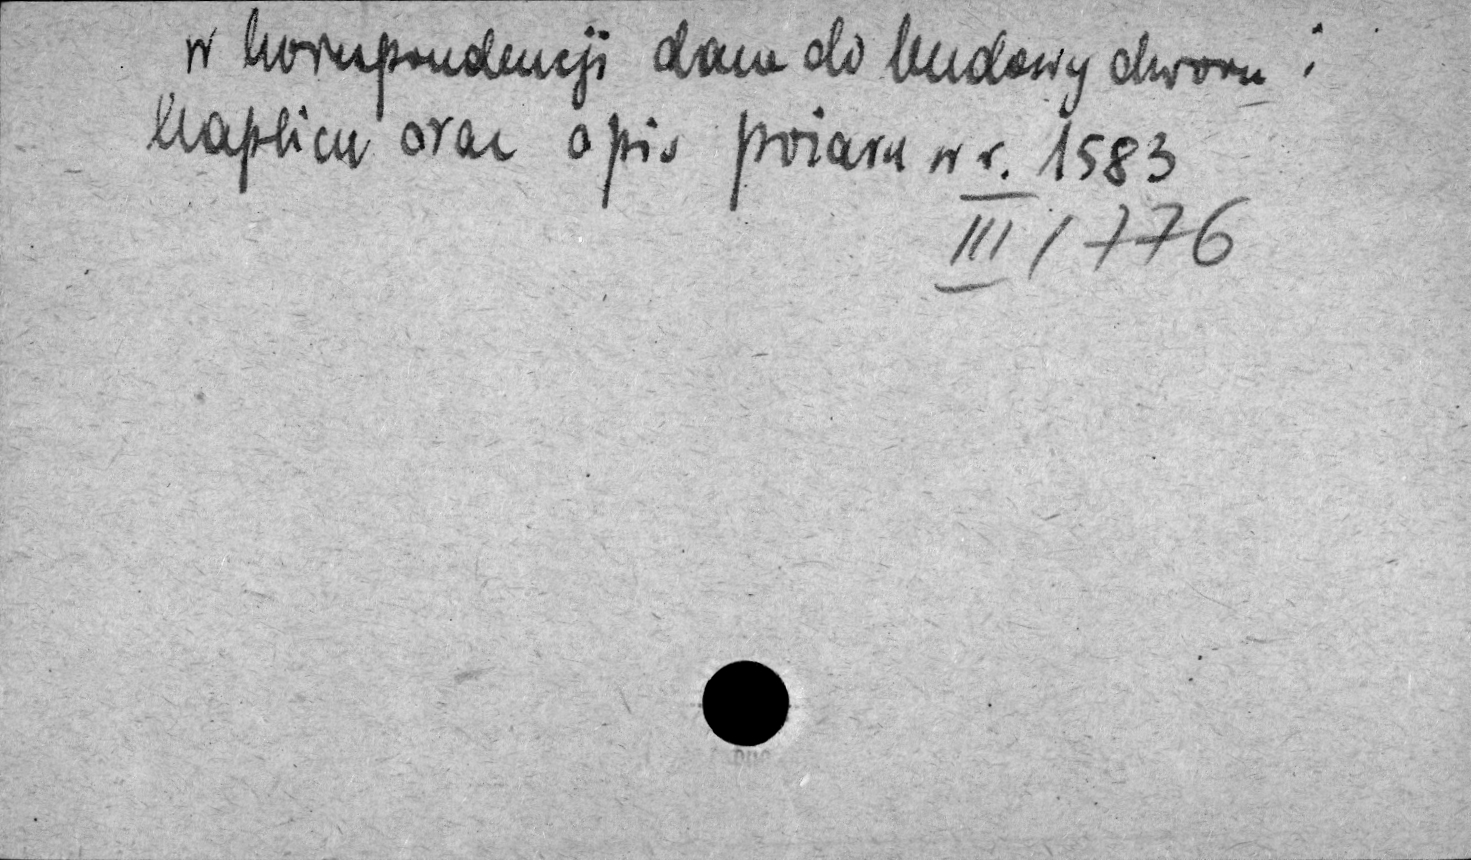 w korespondencji dane do budowy dworu i
kaplicy oraz opis pożaru w r. 1583
III / 776